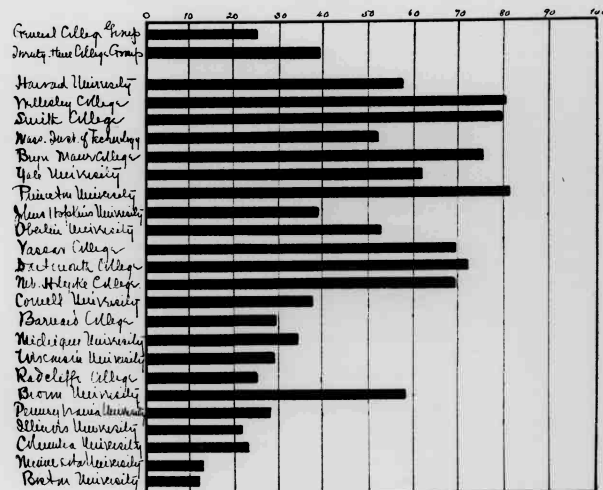 0 10 20 30 40 50 60 70 80 90 100
General College Group
Twenty-three College Group
Harvard University
Wellesley College
Smith College
Mass. Inst. of Technology
Bryn Mawr College
Yale University
Princeton University
Johns Hopkins University
Oberlin University
Vassar College
Dartmouth College
Holyoke College
Cornell University
Barnard College
Michigan University
Wisconsin University
Radcliffe College
Brown University
Pennsylvania University
Illinois University
Columbia University
Minnesota University
Boston University